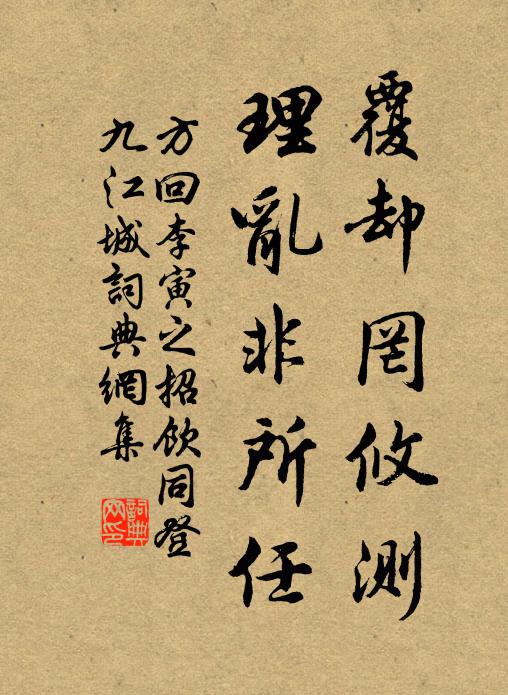 覆却罔攸測
理亂非所任
方回李寅之招飲同登
九江城詞典網集
詞典
网印